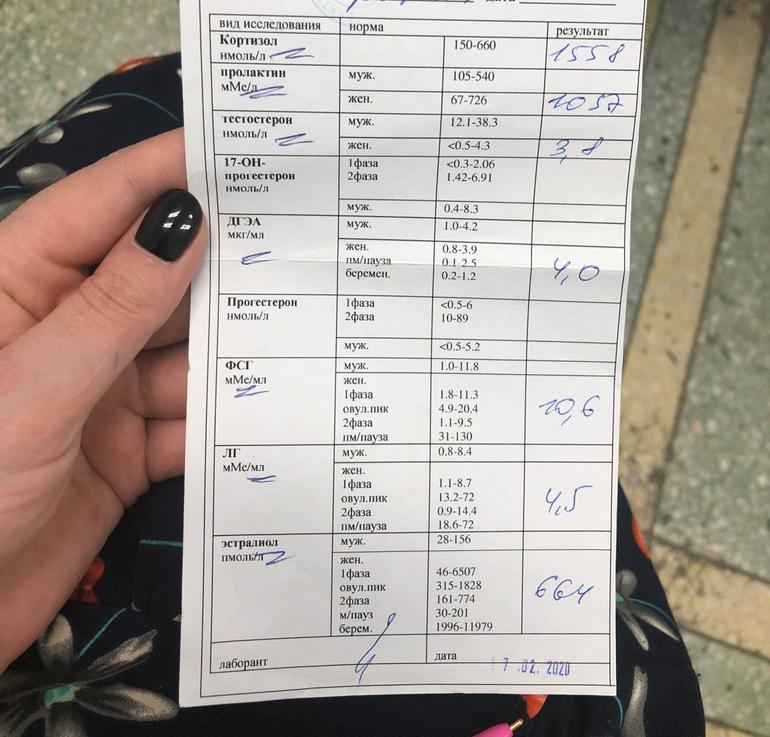 дата
вид исследования норма результат
Кортизол 150-660 1558
нмоль/л
пролактин муж. 105-540
мМе/л
жен. 67-726 1057
тестостерон муж. 12.1-38.3
нмоль/л
жен. <0.5-4.3 3,8
17-ОН- 1фаза <0.3-2.06
прогестерон 2фаза 1.42-6.91
нмоль/л
муж. 0.4-8.3
ДГЭА муж. 1.0-4.2
мкг/мл
жен. 0.8-3.9
пм/пауза 0.1-2.5 4,0
беремен. 0.2-1.2
Прогестерон 1фаза <0.5-6
нмоль/л 2фаза 10-89
муж. <0.5-5.2
ФСГ муж. 1.0-11.8
мМе/мл жен.
1фаза 1.8-11.3
овул.пик 4.9-20.4 10,6
2фаза 1.1-9.5
пм/пауза 31-130
ЛГ муж. 0.8-8.4
мМе/мл
жен.
1фаза 1.1-8.7
овул.пик 13.2-72 4,5
2фаза 0.9-14.4
пм/пауза 18.6-72
эстрадиол муж. 28-156
пмоль/л
жен.
1фаза 46-6507
овул.пик 315-1828 664
2фаза 161-774
м/пауз 30-201
берем. 1996-11979
лаборант дата 17.02.2020